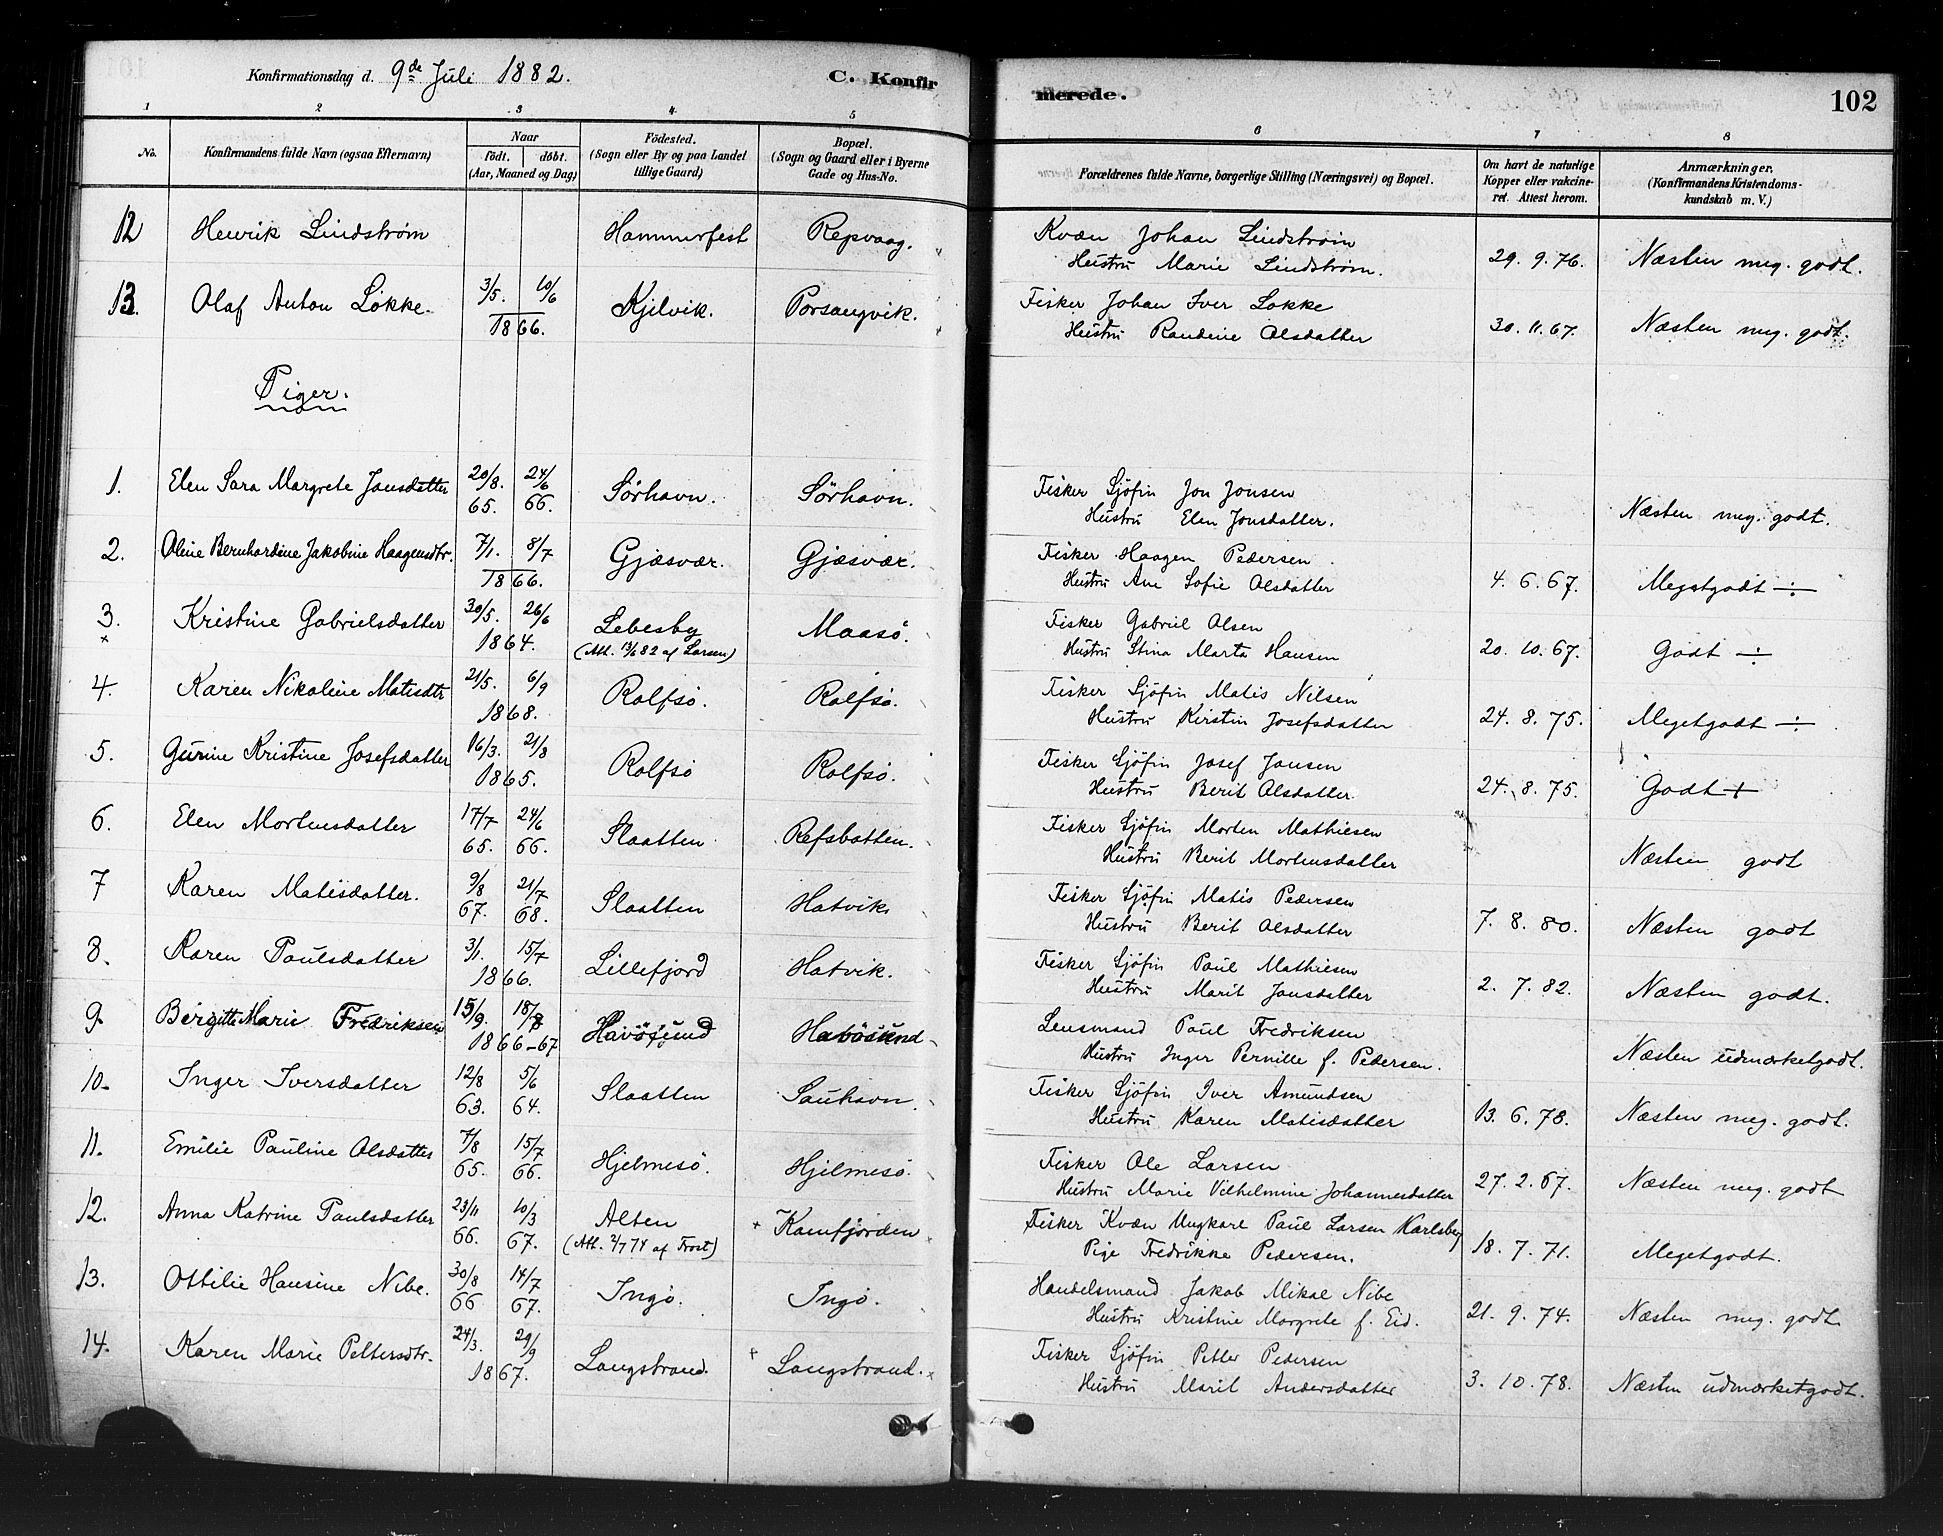 Konfirmationsdag d. 9de Juli 1882. C. Konfirmerede. 102
1 2 3 4 5 6 7 8
No. Konfirmandens fulde Navn (ogsaa Efternavn) Naar födt. döbt. (Aar, Maaned og Dag) Födested. (Sogn eller By og paa Landet tillige Gaard) Bopæl. (Sogn og Gaard eller i Byerne Gade og Hus-No. Forældrenes fulde Navne, borgerlige Stilling (Næringsvei) og Bopæl. Om havt de naturlige Kopper eller vakcineret. Attest herom. Anmærkninger. (Konfirmandens Kristendomskundskab m. V.)
12 Henrik Lindstrøm Hammerfest Repvaag. Kvæn Johan Lindstrøm
Hustru Marie Lindstrøm. 29. 9. 76. Næsten meg. godt.
13. Olaf Anton Løkke. 3/5. 10/6 1866. Kjelvik. Porsangvik. Fisker Johan Iver Løkke
Hustru Randine Olsdatter 30. 11. 67. Næsten meg. godt.
Piger.
1. Elen Sara Margrete Jonsdatter 20/8. 65. 24/6 66. Sörhavn. Sörhavn. Fisker Sjöfin Jon Jonsen
Hustru Elen Jonsdatter. Næsten meg. godt.
2. Oline Bernhardine Jakobine Haagensdtr. 7/1. 8/7 1866. Gjæsvær. Gjæsvær. Fisker Haagen Pedersen
Hustru Ane Sofie Olsdatter 4. 6. 67. Megetgodt ÷
3. × Kristine Gabrielsdatter 30/5. 26/6 1864. Lebesby (Att. 13/6 82 af Larsen) Maasö. Fisker Gabriel Olsen
Hustru Stina Marta Hansen 20. 10. 67. Godt ÷
4. Karen Nikoline Matisdtr 21/5. 6/9 1868. Rolfsö. Rolfsö. Fisker Sjöfin Matis Nilsen
Hustru Kirstin Josefsdatter 24. 8. 75. Megetgodt ÷
5. Gurine Kristine Josefsdatter 16/3. 21/8 1865. Rolfsö Rolfsö. Fisker Sjöfin Josef Jonsen
Hustru Berit Olsdatter. 24. 8. 75. Godt +
6. Elen Mortensdatter 17/7 65. 24/6 66. Slaatten Refsbotten. Fisker Sjöfin Morten Mathiesen
Hustru Berit Mortensdatter Næsten godt
7 Karen Matisdatter. 9/8 67. 21/7 68. Slaatten Hatvik Fisker Sjöfin Matis Pedersen
Hustru Berit Olsdatter 7. 8. 80. Næsten godt
8. Karen Paulsdatter 3/1. 15/7 1866. Lillefjord Hatvik. Fisker Sjöfin Paul Mathiesen
Hustru Marit Jonsdatter 2. 7. 82. Næsten godt.
9. Birgitte Marie Fredriksen 15/9. 18/8 1866-67 Havösund Havösund Lensmand Paul Fredriksen
Hustru Inger Pernille f. Pedersen. Næsten udmærketgodt.
10. Inger Iversdatter 12/8 63. 5/6 64. Slaatten Sauhavn. Fisker Sjöfin Iver Amundsen
Hustru Karen Matisdatter 13. 6. 78. Næsten meg. godt.
11. Emilie Pauline Olsdatter 7/8 65. 15/7 66. Hjelmesö. Hjelmesö. Fisker Ole Larsen
Hustru Marie Vilhelmine Johannesdatter 27. 2. 67. Næsten meg. godt
12. Anna Katrine Paulsdatter 23/11 66. 10/3 67. Alten (Att. 2/7 74 af Frost) + Kamfjorden Fisker Kvæn Ungkarl Paul Larsen Karlsberg
Pige Fredrikke Pedersen. 18. 7. 71. Megetgodt.
13. Ottilie Hansine Nibe. 30/8 66 14/7 67. Ingö. Ingö. Handelsmand Jakob Mikal Nibe
Hustru Kristine Margrete f. Eid. 21. 9. 74. Næsten meg. godt.
14. Karen Marie Pettersdtr. 24/3. 29/9 1867. Langstrand. + Langstrand. × Fisker Sjöfin Petter Pedersen
Hustru Marit Andersdatter 3. 10. 78. Næsten udmærketgodt.